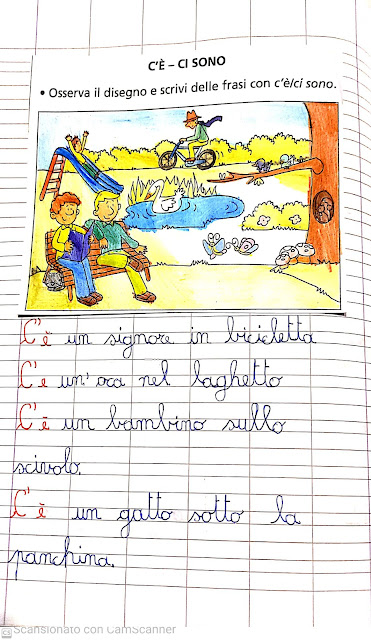 C'È – CI SONO
• Osserva il disegno e scrivi delle frasi con c'è/ci sono.
C'è un signore in bicicletta
C'è un' oca nel laghetto
C'è un bambino sullo
scivolo.
C'è un gatto sotto la
panchina.
CS Scansionato con CamScanner